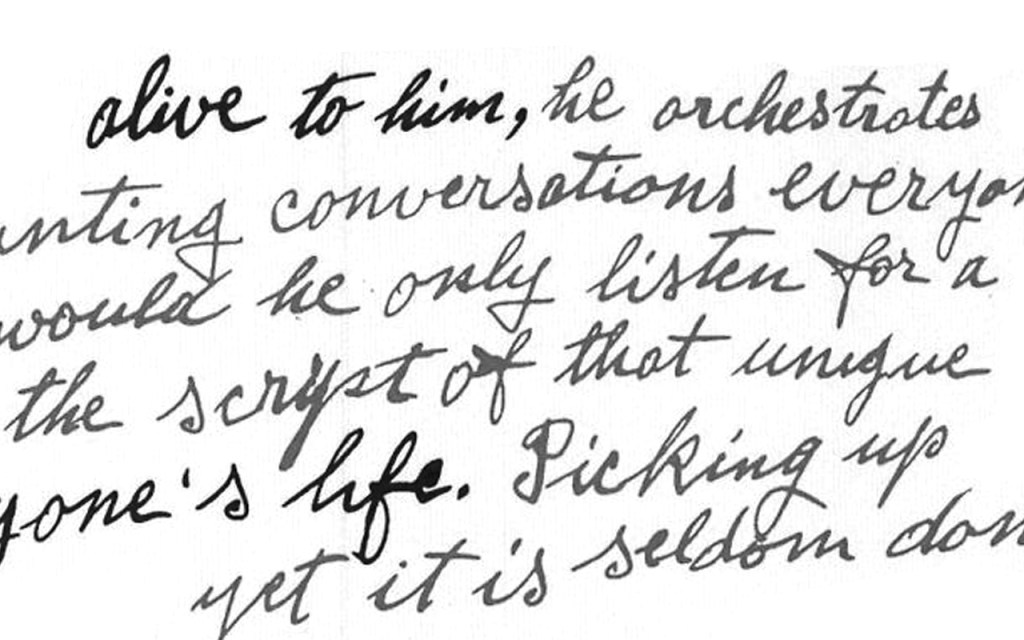 alive to him, he orchestrates
unting conversations everyon
would he only listen for a
the script of that unique
yone's life. Picking up
yet it is seldom don